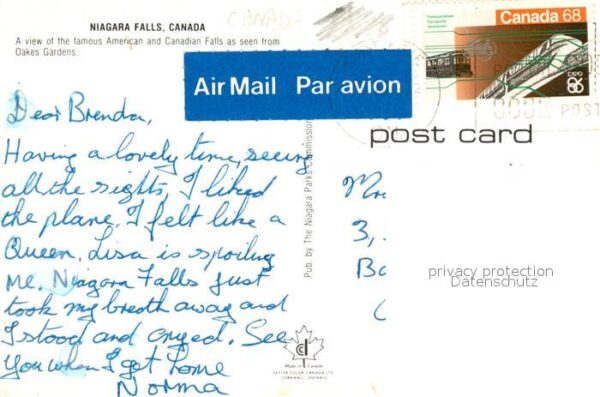 NIAGARA FALLS, CANADA
A view of the famous American and Canadian Falls as seen from
Oakes Gardens.
CANADA
Air Mail Par avion
Canada 68
EXPO 86
CODE POST
post card
Dear Brenda,
Having a lovely time, seeing
all the sights, I liked
the plane. I felt like a
Queen. Lisa is spoiling
me. Niagara Falls just
took my breath away and
I stood and cryed. See
you when I get home
Norma
Pub. by The Niagara Parks Commission
3,
privacy protection
Datenschutz
Made in Canada
CORNWALL, ONTARIO